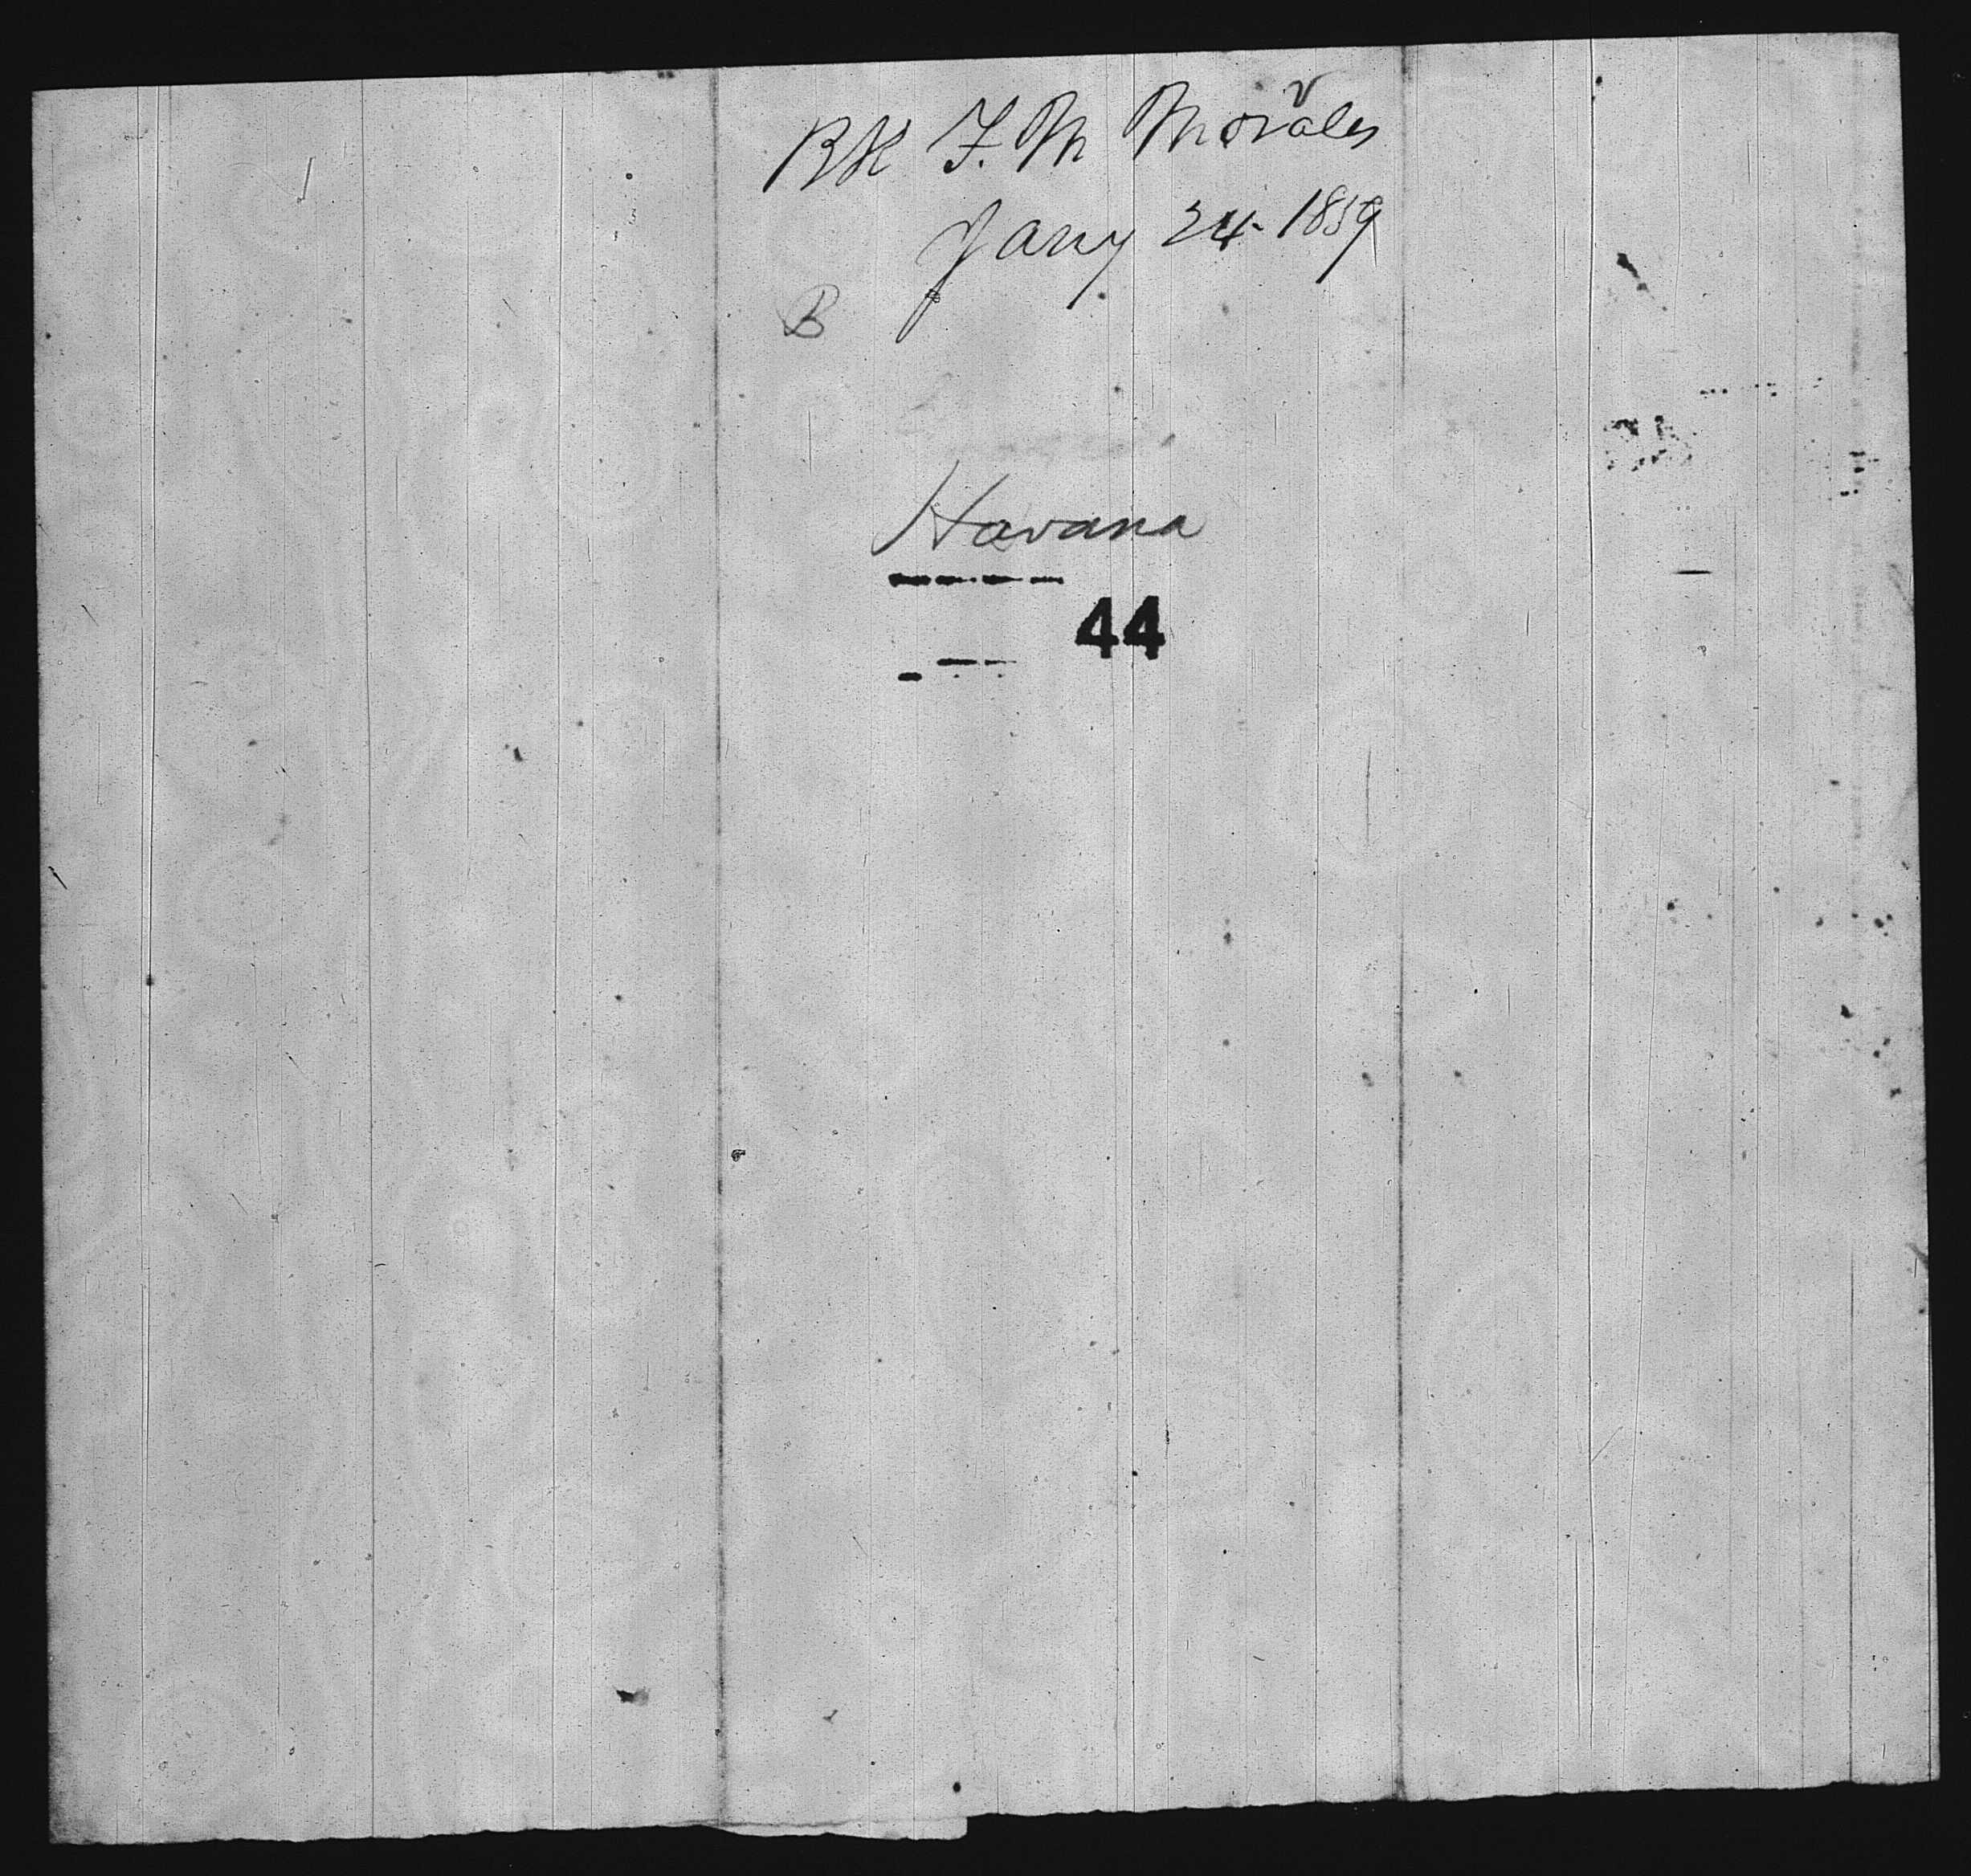 BK F. M Morales
Jany 24 1859
B
Havana
44